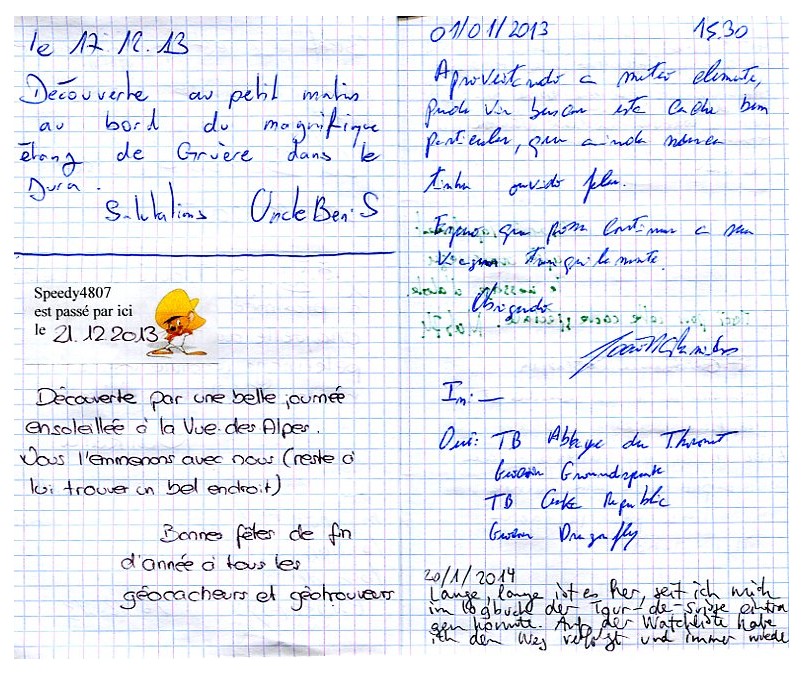 le 17.12.13
Découverte au petit matin
au bord du magnifique
étang de Gruère dans le
Jura.
Salutations UncleBen'S
Speedy4807
est passé par ici
le 21.12.2013
Découverte par une belle journée
ensoleillée à la Vue-des-Alpes.
Nous l'emmenons avec nous (reste à
lui trouver un bel endroit)
Bonnes fêtes de fin
d'année à tous les
géocacheurs et géotrouveurs
01/01/2013 15.30
Aproveitando a meteo clemente,
pude vir buscar esta cache bem
particular, que ainda nunca
tinha ouvido falar.
Espero que possa continuar a sua
viagem tranquilamente.
Obrigado
In: —
Out: TB Abbaye du Thoronet
Geocoin Groundspeak
TB Republic
Geocoin Dragonfly
20/1/2014
Lange, lange ist es her, seit ich mich
im Logbuch der Tour-de-Suisse eintra
gen konnte. Auf der Watchliste habe
ich den Weg verfolgt und immer wiede